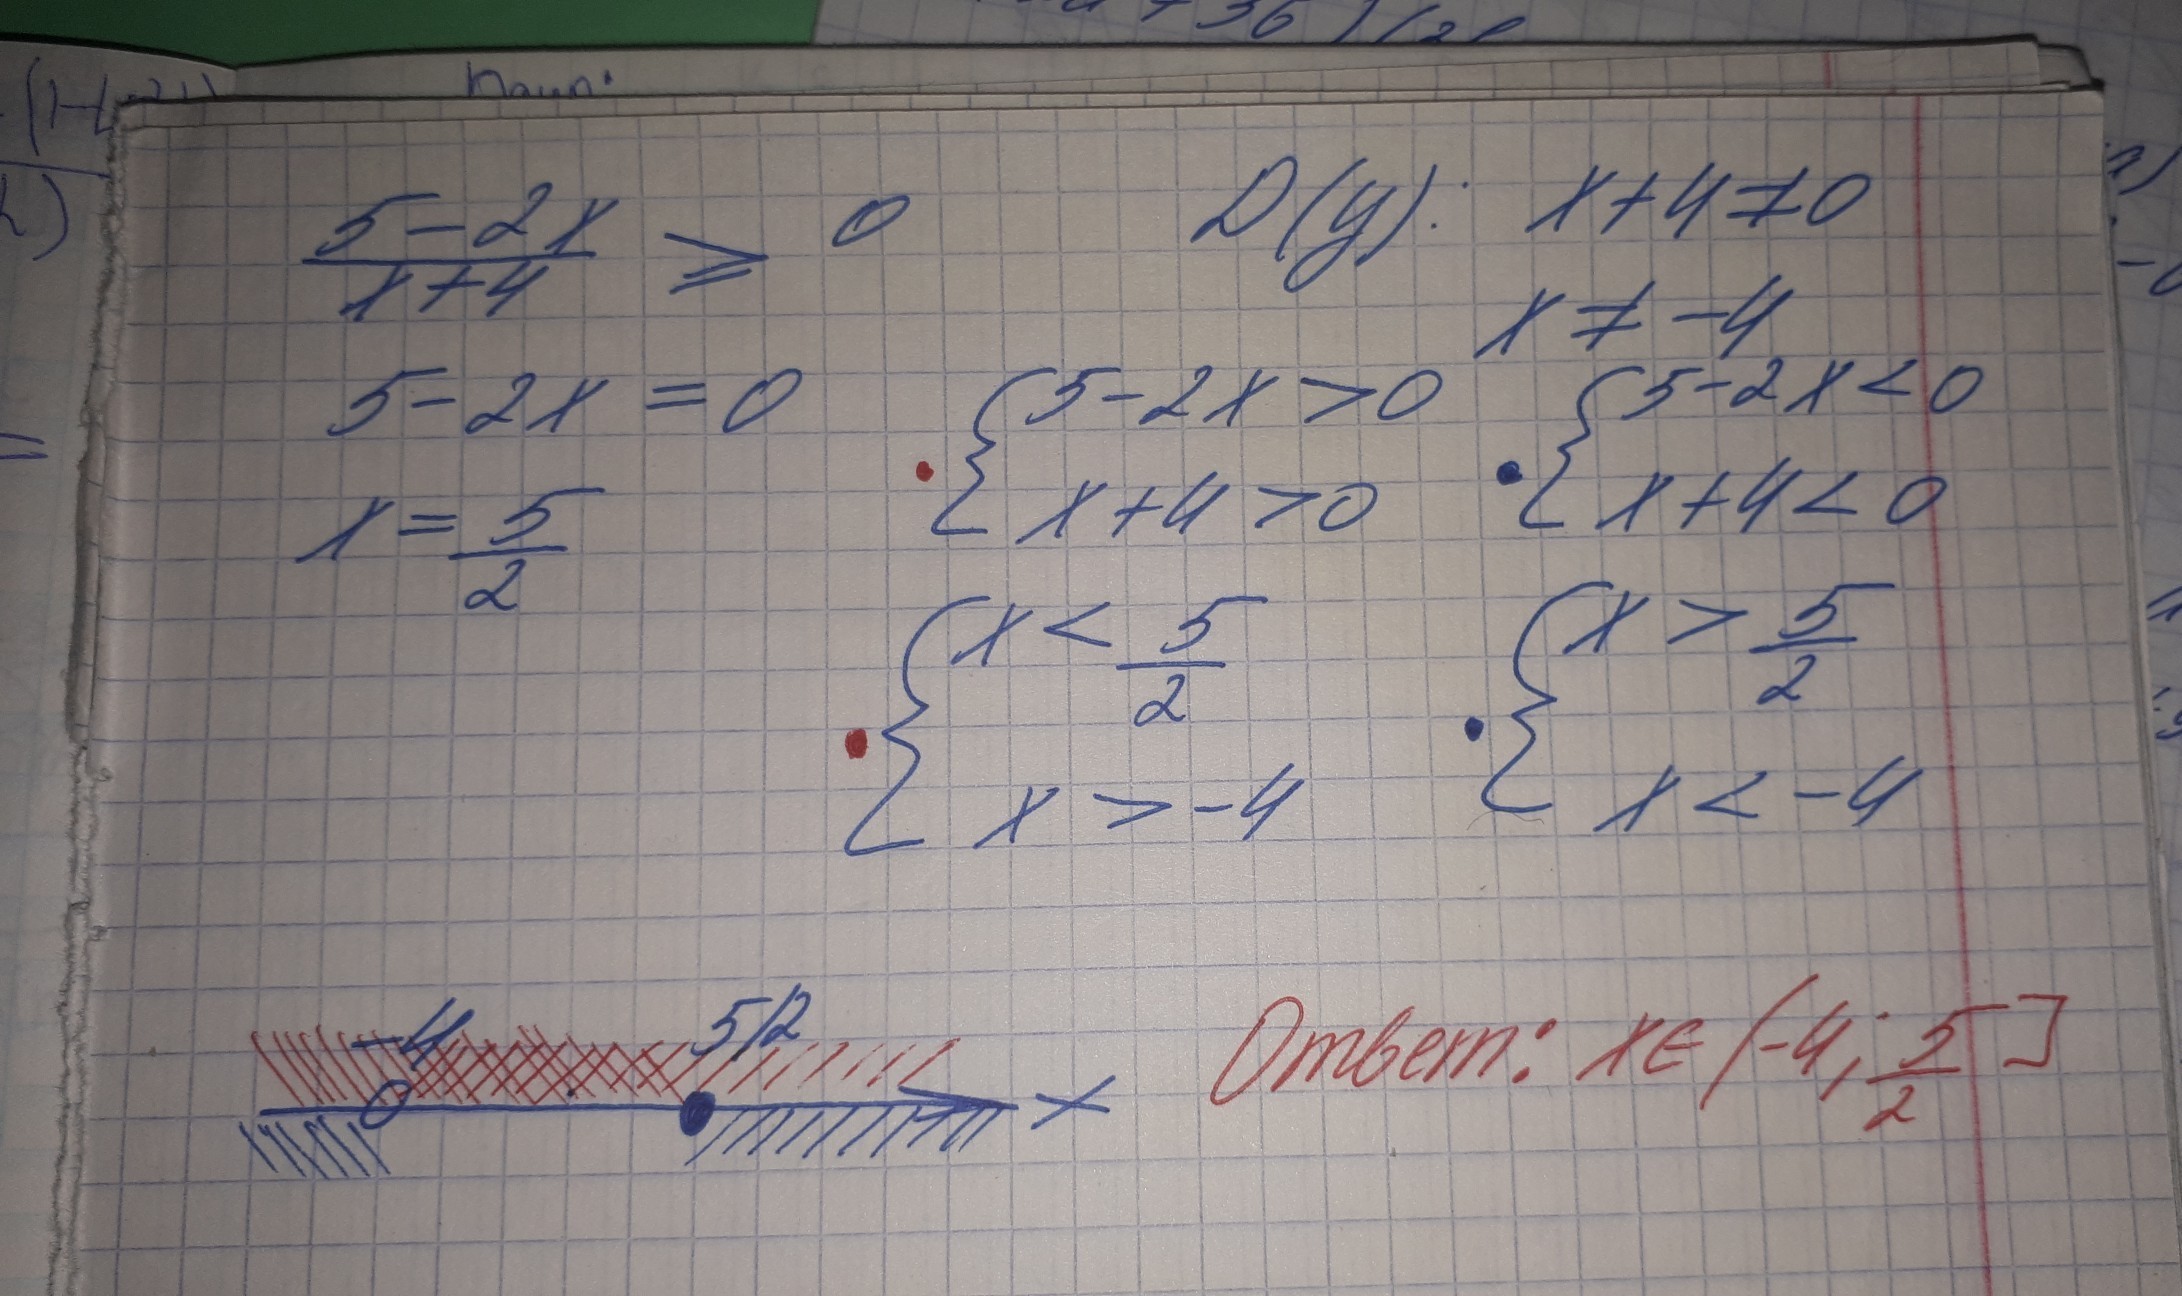 (5-2x)/(x+4) ≥ 0
D(y): x+4≠0
x ≠ -4
5-2x = 0
{5-2x>0
x+4>0
{5-2x<0
x+4<0
x = 5/2
{x < 5/2
x > -4
{x > 5/2
x < -4
-4 5/2
x
Ответ: x∈(-4; 5/2]